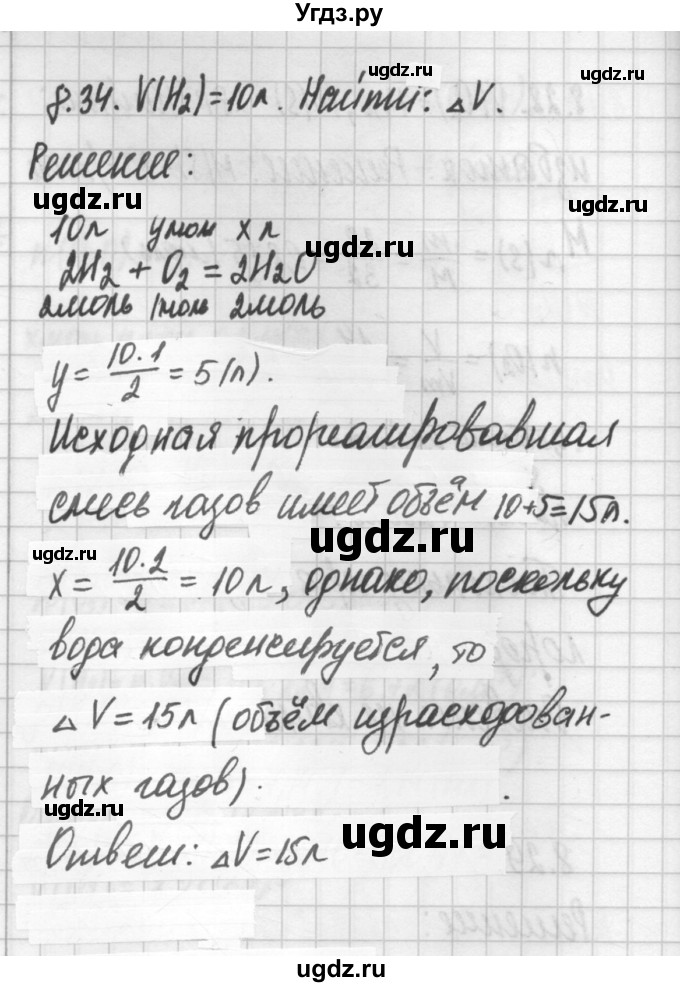 Угдз.ру
8.34. V(H₂)=10л. Найти: △V.
ugdz.ru
Решение:
ugdz.ru
10л y мол x л
2H₂ + O₂ = 2H₂O
2моль 1моль 2моль
ugdz.ru
y = 10·1/2 = 5 (л).
Исходная прореагировавшая
смесь газов имеет объём 10+5=15л.
ugdz.ru
ugdz.ru
x = 10·2/2 = 10л, однако, поскольку
вода конденсируется, то
△V=15л (объём израсходован-
ugdz.ru
ных газов).
ugdz.ru
ugdz.ru
Ответ: △V=15л
ugdz.ru